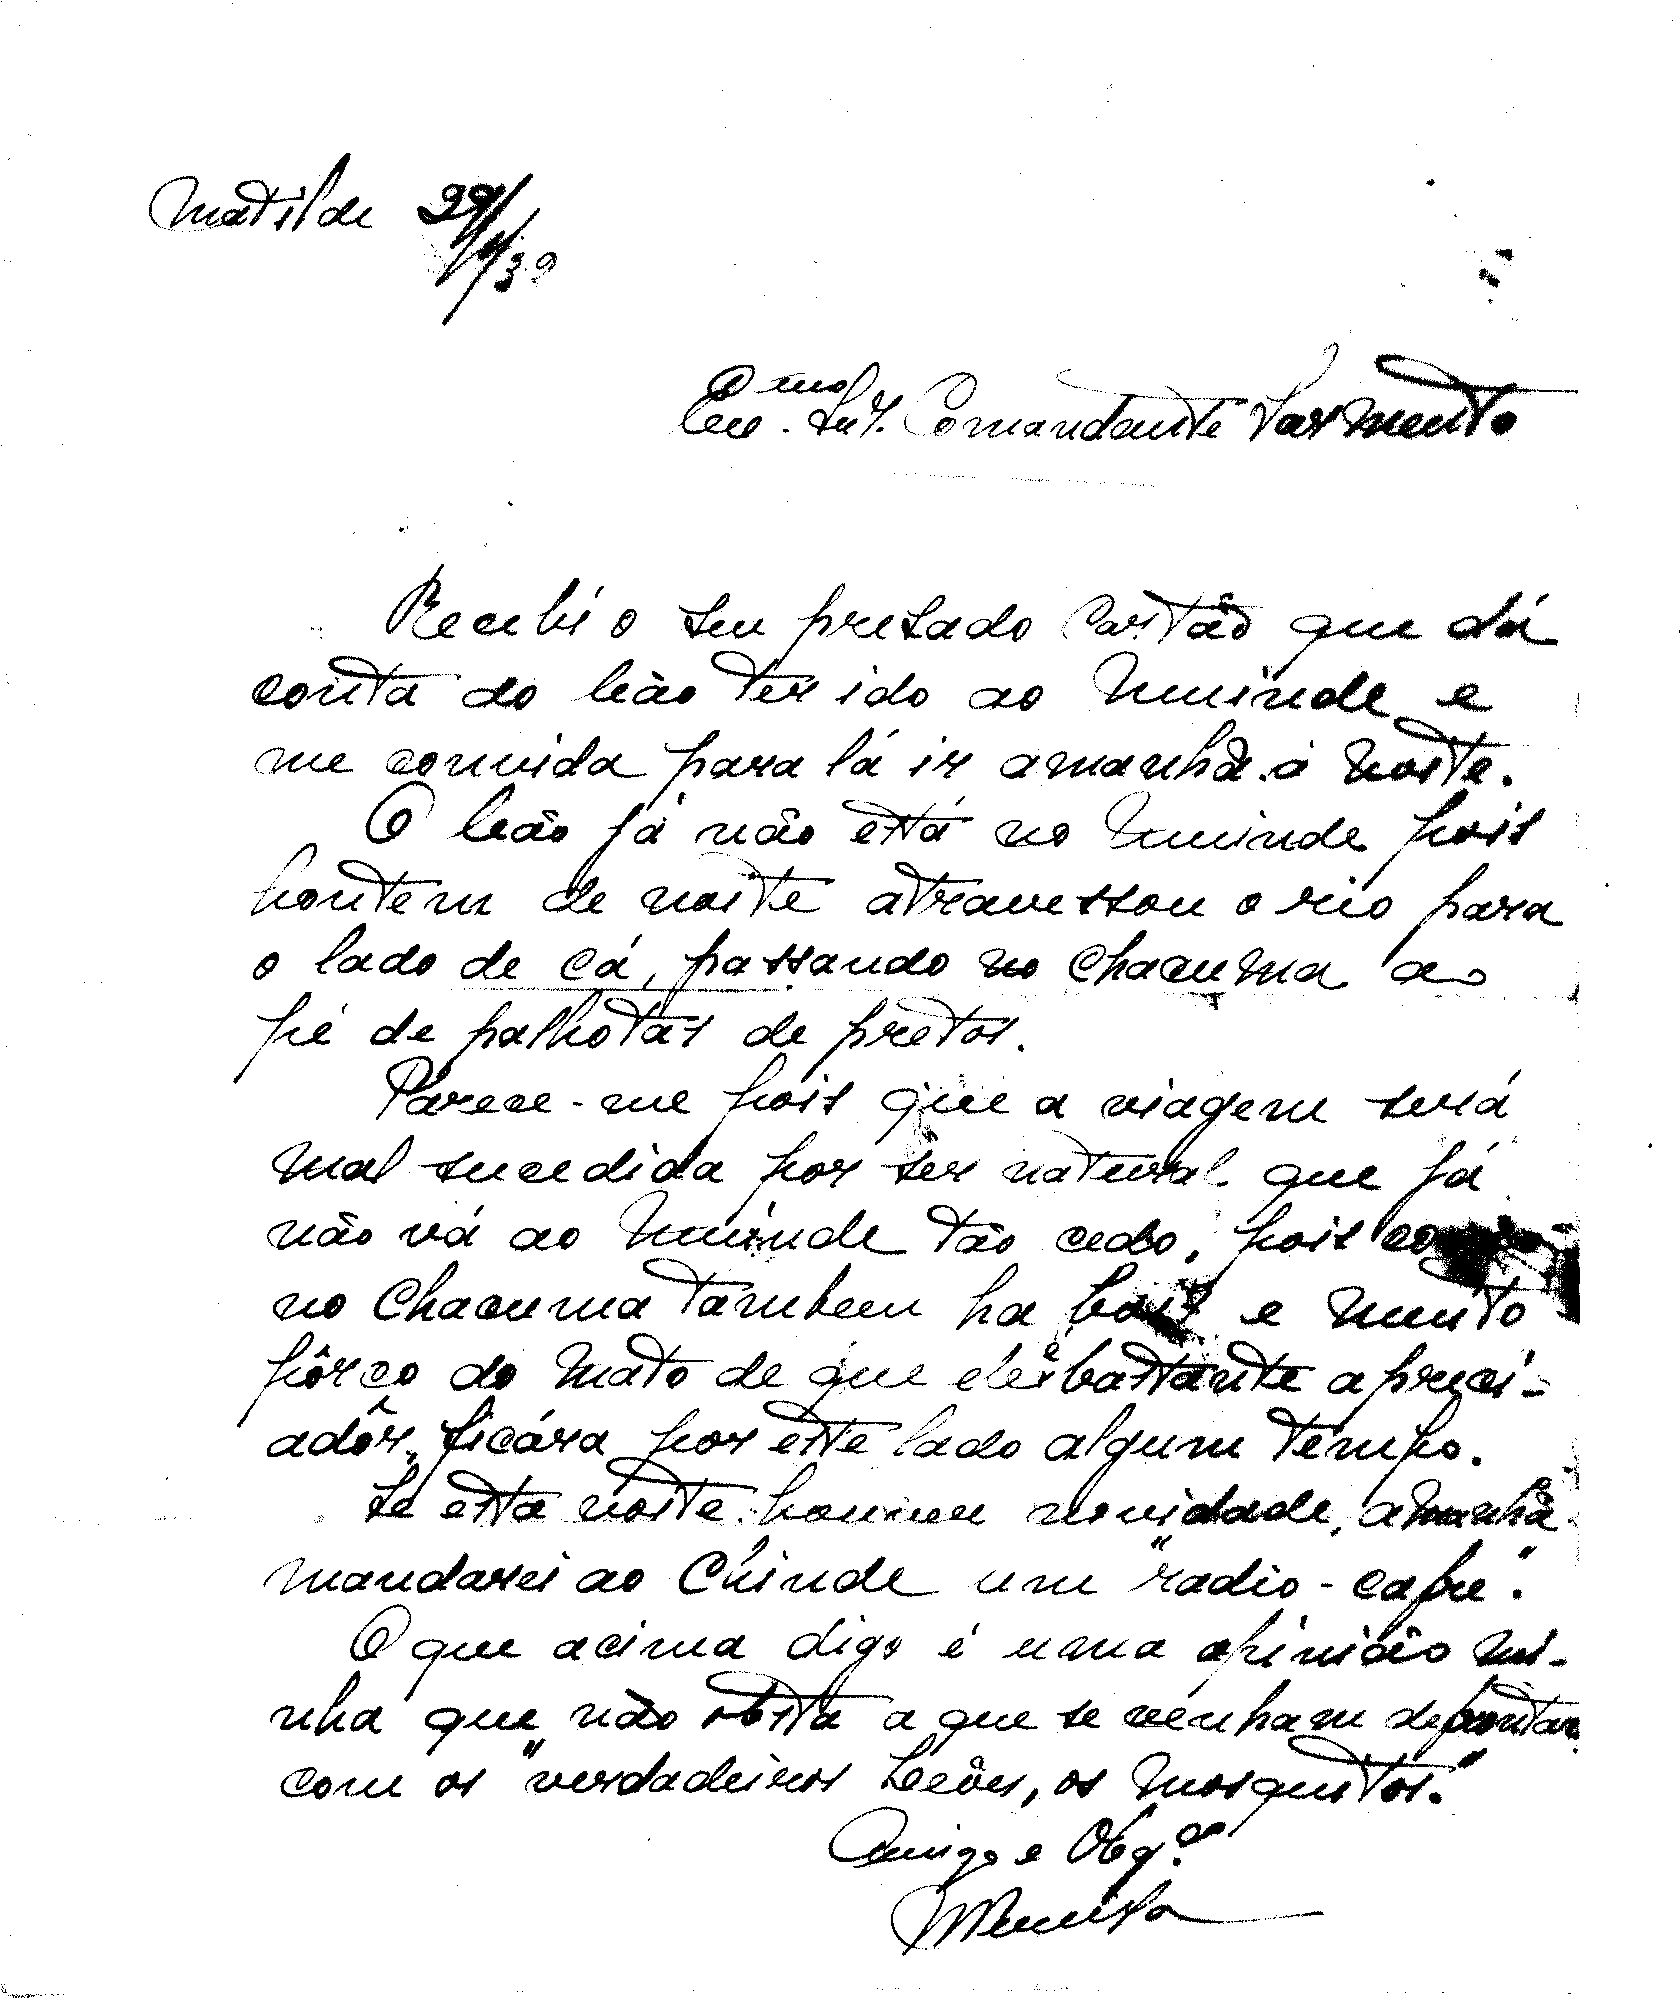 Matilde 29/
/39
Exc.mo Snr. Comandante Sarmento
Recebi o seu presado Cartão que dá
conta do leão ter ido ao Muinde e
me convida para lá ir amanhã á noite.
O leão já não está no Muinde pois
hontem de noite atravessou o rio para
o lado de cá, passando no Chacuma ao
pé de palhotas de pretos.
Parece-me pois que a viagem será
mal sucedida por ser natural que já
não vá ao Muinde tão cedo, pois
no Chacuma tambem ha bois e muito
pôrco do mato de que ele é bastante apreci-
adôr, ficára por este lado algum tempo.
Se esta noite houver novidade, amanhã
mandarei ao Chinde um "radio-cafre".
O que acima digo é uma opinião mi-
nha que não obsta a que se venham defrontar
com os "verdadeiros Leões, os mosquitos."
Amigo e Obgº.